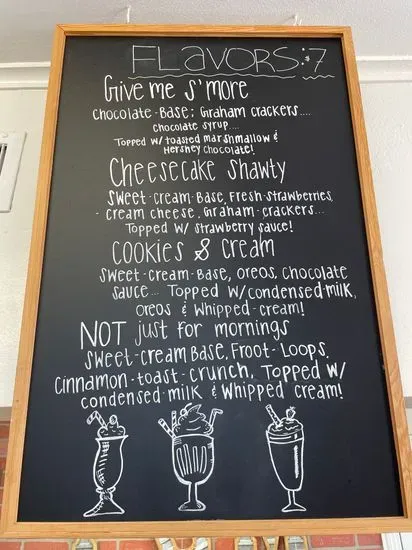 FLAVORS: $7
Give me S'more
Chocolate-Base; Graham crackers....
Chocolate syrup....
Topped w/ toasted marshmallow &
Hershey chocolate!
Cheesecake Shawty
Sweet-cream-Base, Fresh-strawberries,
cream cheese, Graham-crackers...
Topped w/ strawberry sauce!
Cookies & Cream
Sweet-cream-Base, oreos, chocolate
sauce... Topped w/condensed-milk,
oreos & whipped-cream!
NOT just for mornings
Sweet-cream Base, Froot-Loops,
cinnamon-toast-crunch, Topped w/
condensed-milk & whipped cream!